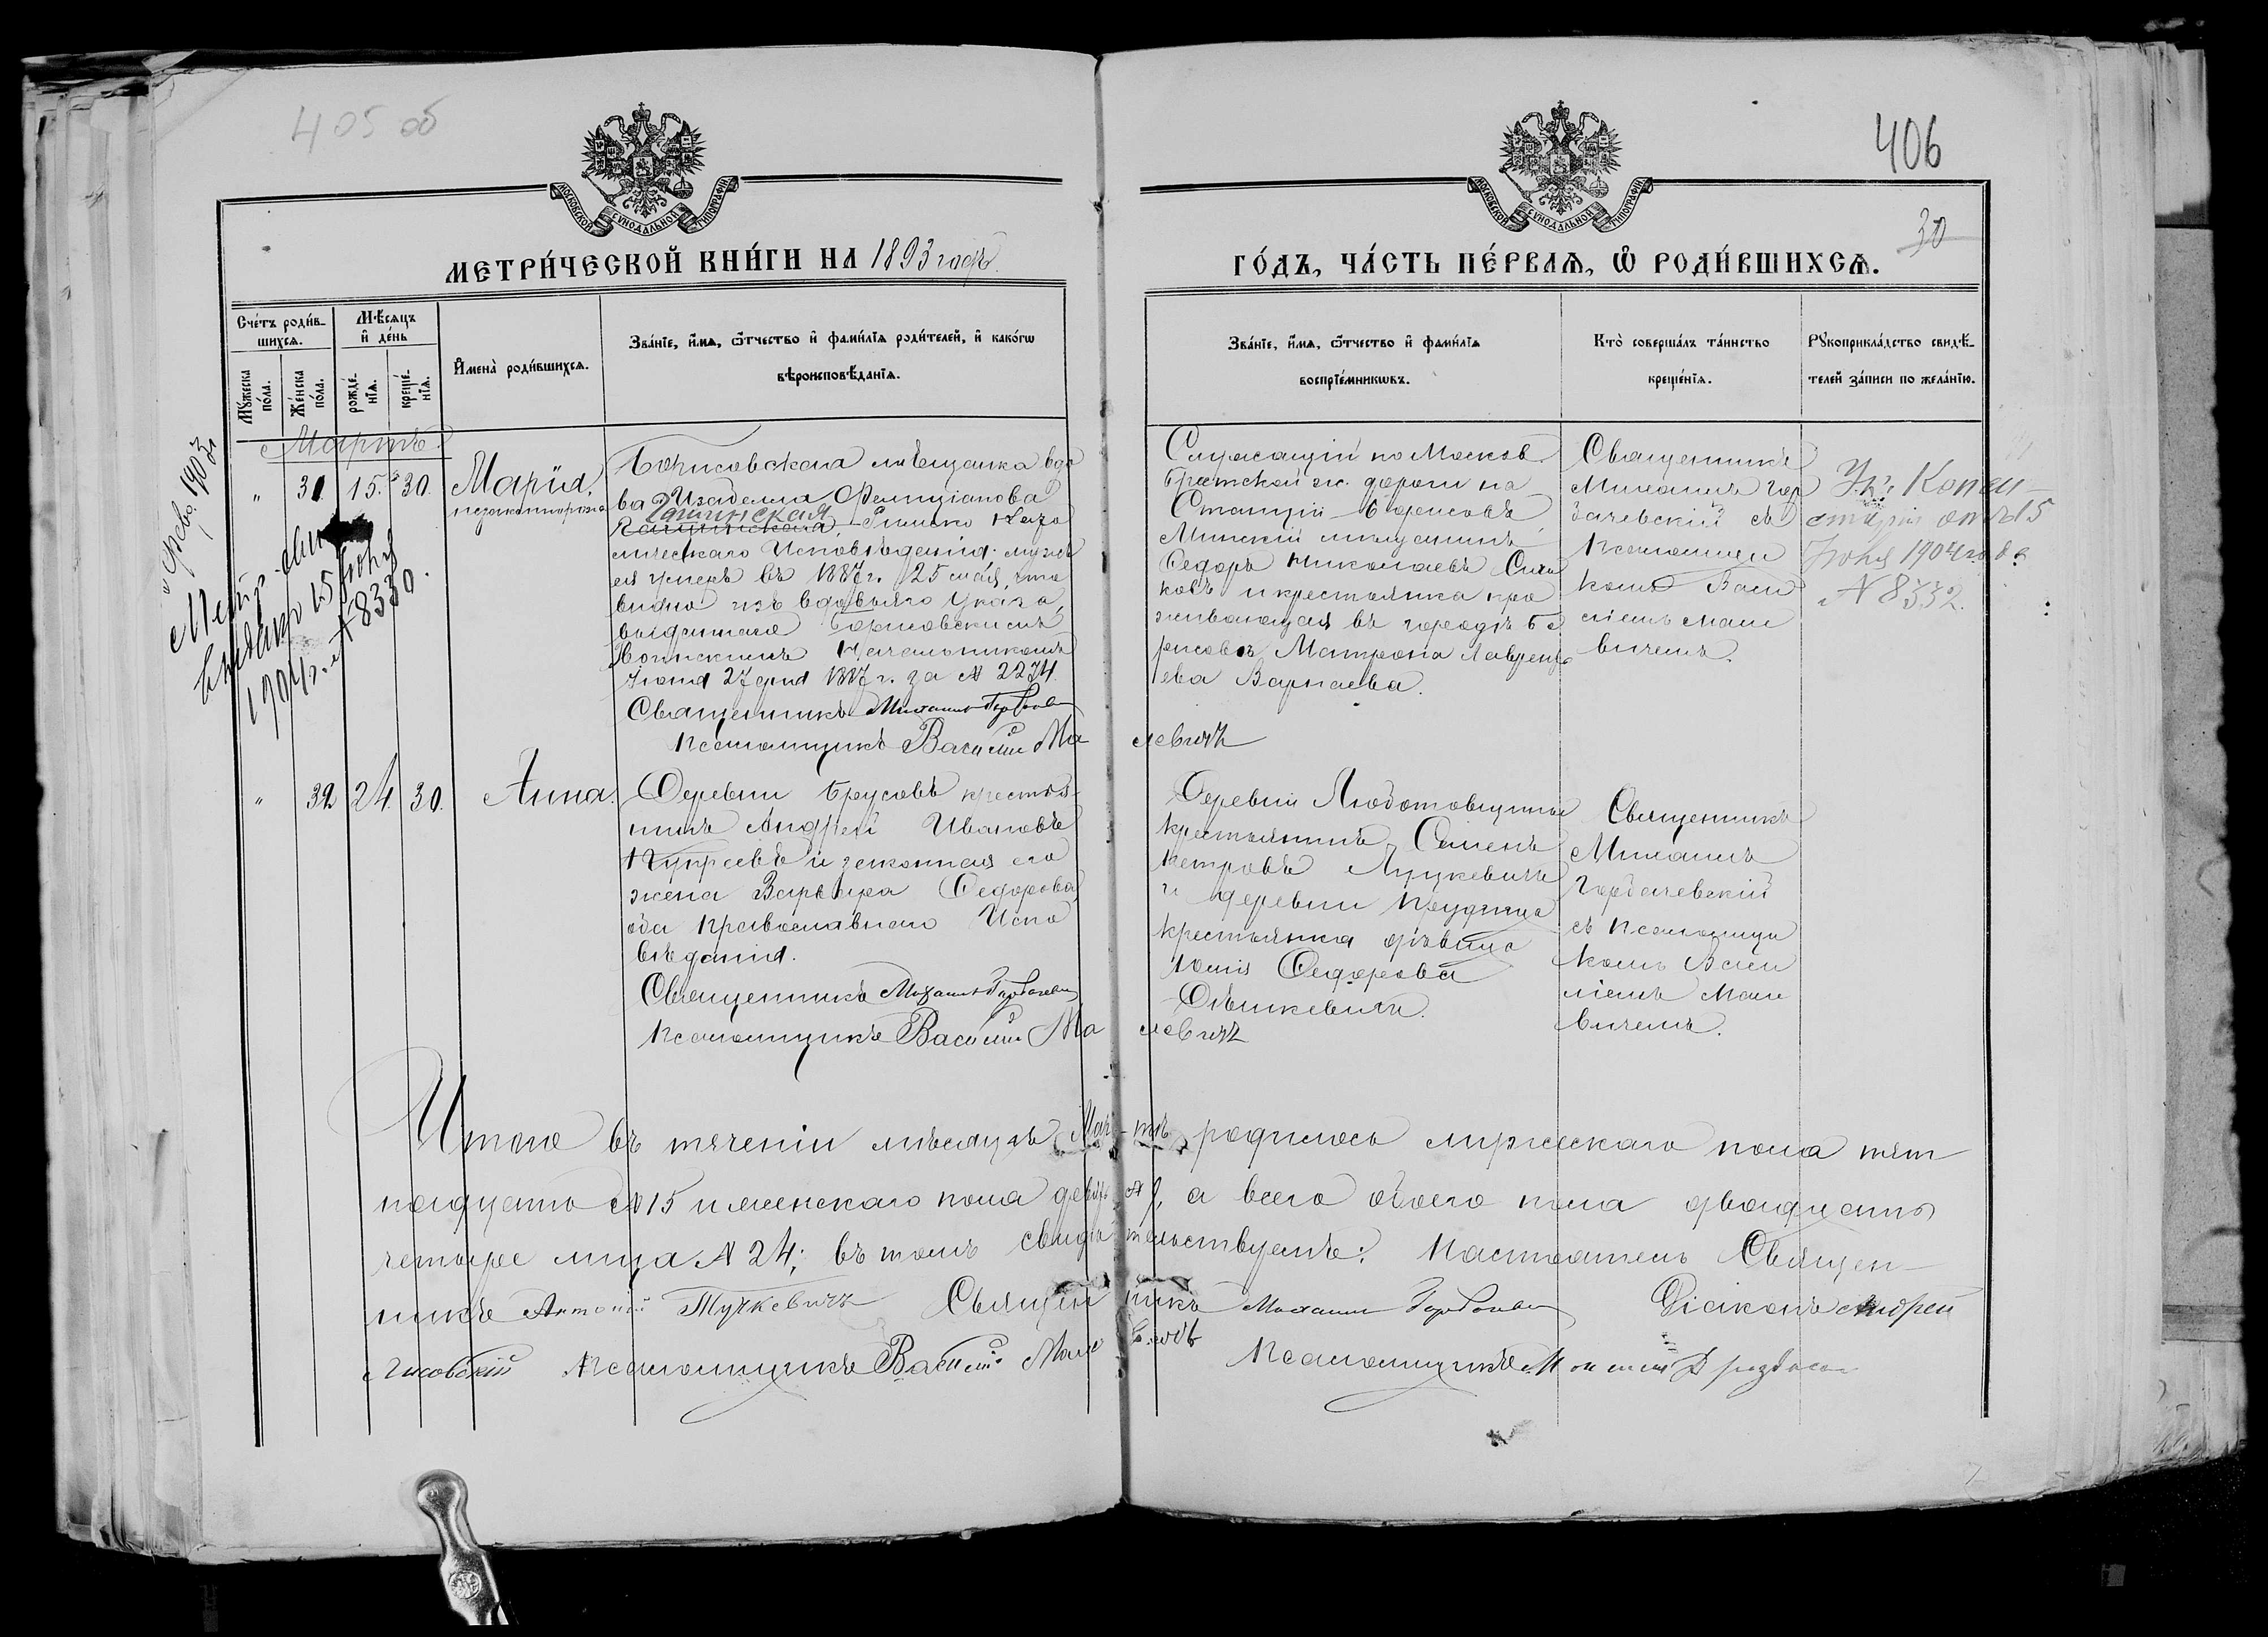 405 об
406
30
МОСКОВСКОЙ СУНОДАЛЬНОЙ ТИПОГРАФІИ
МОСКОВСКОЙ СУНОДАЛЬНОЙ ТИПОГРАФІИ
МЕТРИ́ЧЕСКОЙ КНИ́ГИ НА 1893 годъ.
ГО́ДЪ, ЧА́СТЬ ПЕ́РВАѦ, Ѡ҆ РОДИ́ВШИХСѦ.
Сче́тъ роди́в-
шихсѧ.
Мꙋ́жеска
по́ла.
Же́нска
по́ла.
Мѣ́сѧцъ
и҆ де́нь
рожде́-
нїѧ.
креще́-
нїѧ.
И҆мена̀ роди́вшихсѧ.
Зва́нїе, и҆́мѧ, ѻ҆́тчество и҆ фами́лїѧ роди́телей, и҆ како́гѡ
вѣроисповѣ́данїѧ.
Зва́нїе, и҆́мѧ, ѻ҆́тчество и҆ фами́лїѧ
воспрїе́мникѡвъ.
Кто̀ соверша́лъ та́инство
креще́нїѧ.
Рꙋкоприкла́дство свидѣ́-
телей за́писи по жела́нїю.
Мартъ.
" 31. 15. 30.
Марія,
незаконнорожд
Борисовская мѣщанка вдо
ва Изабелла Фелиціанова
Гашинская Римско Като
лическаго Исповѣданія. мужъ
ея умеръ въ 1887 г. 25 мая, что
видно изъ вдовьяго указа,
выданнаго Борисовскимъ
Воинскимъ Начальникомъ
Іюня 27 дня 1887 г. за № 2274.
Священникъ Михаилъ Горбачевскій
Псаломщикъ Василій Ма левичъ
Служащій по Москов.
Брестской ж. дороги на
Станціи Борисовъ
Минскій мѣщанинъ
Ѳедоръ Николаевъ
ковъ и крестьянка про
живающая въ городѣ Бо
рисовѣ Матрона Лаврентьева
Варнаева.
Священникъ
Михаилъ Гор
бачевскій съ
Псаломщи
комъ Васи
ліемъ Мале
вичемъ.
Ук. Конси-
сторіи отъ 15
Іюня 1904 года
№ 8332.
февр. 1903 г.
Метр. вып.
выдана 15 Іюня
1904 г. № 8330.
" 32 24. 30.
Анна.
Деревни Брусовъ крестья-
нинъ Андрей Ивановъ
Купреевъ и законная его
жена Варвара Ѳедорова,
оба Православнаго Испо
вѣданія.
Священникъ Михаилъ Горбачевскій
Псаломщикъ Василій Ма левичъ
Деревни Любатовщины
крестьянинъ Семенъ
Петровъ Луцкевичъ
и деревни Прудища
крестьянка дѣвица
Юлія Ѳедорова
Олѣшкевичъ.
Священникъ
Михаилъ
Горбачевскій
съ Псаломщи
комъ Васи
ліемъ Мале
вичемъ.
Итого въ теченіи мѣсяцѣ Мартѣ родилось мужескаго пола пят
надцать № 15 и женскаго пола девять № 9, а всего обоего пола двадцать
четыре лица № 24; въ томъ свидѣтельствуемъ: Настоятель Священ-
никъ Антоній Тучкевичъ Священникъ Михаилъ Горбачевскій Діаконъ Андрей
Лисовскій Псаломщикъ Василій Малевичъ Псаломщикъ